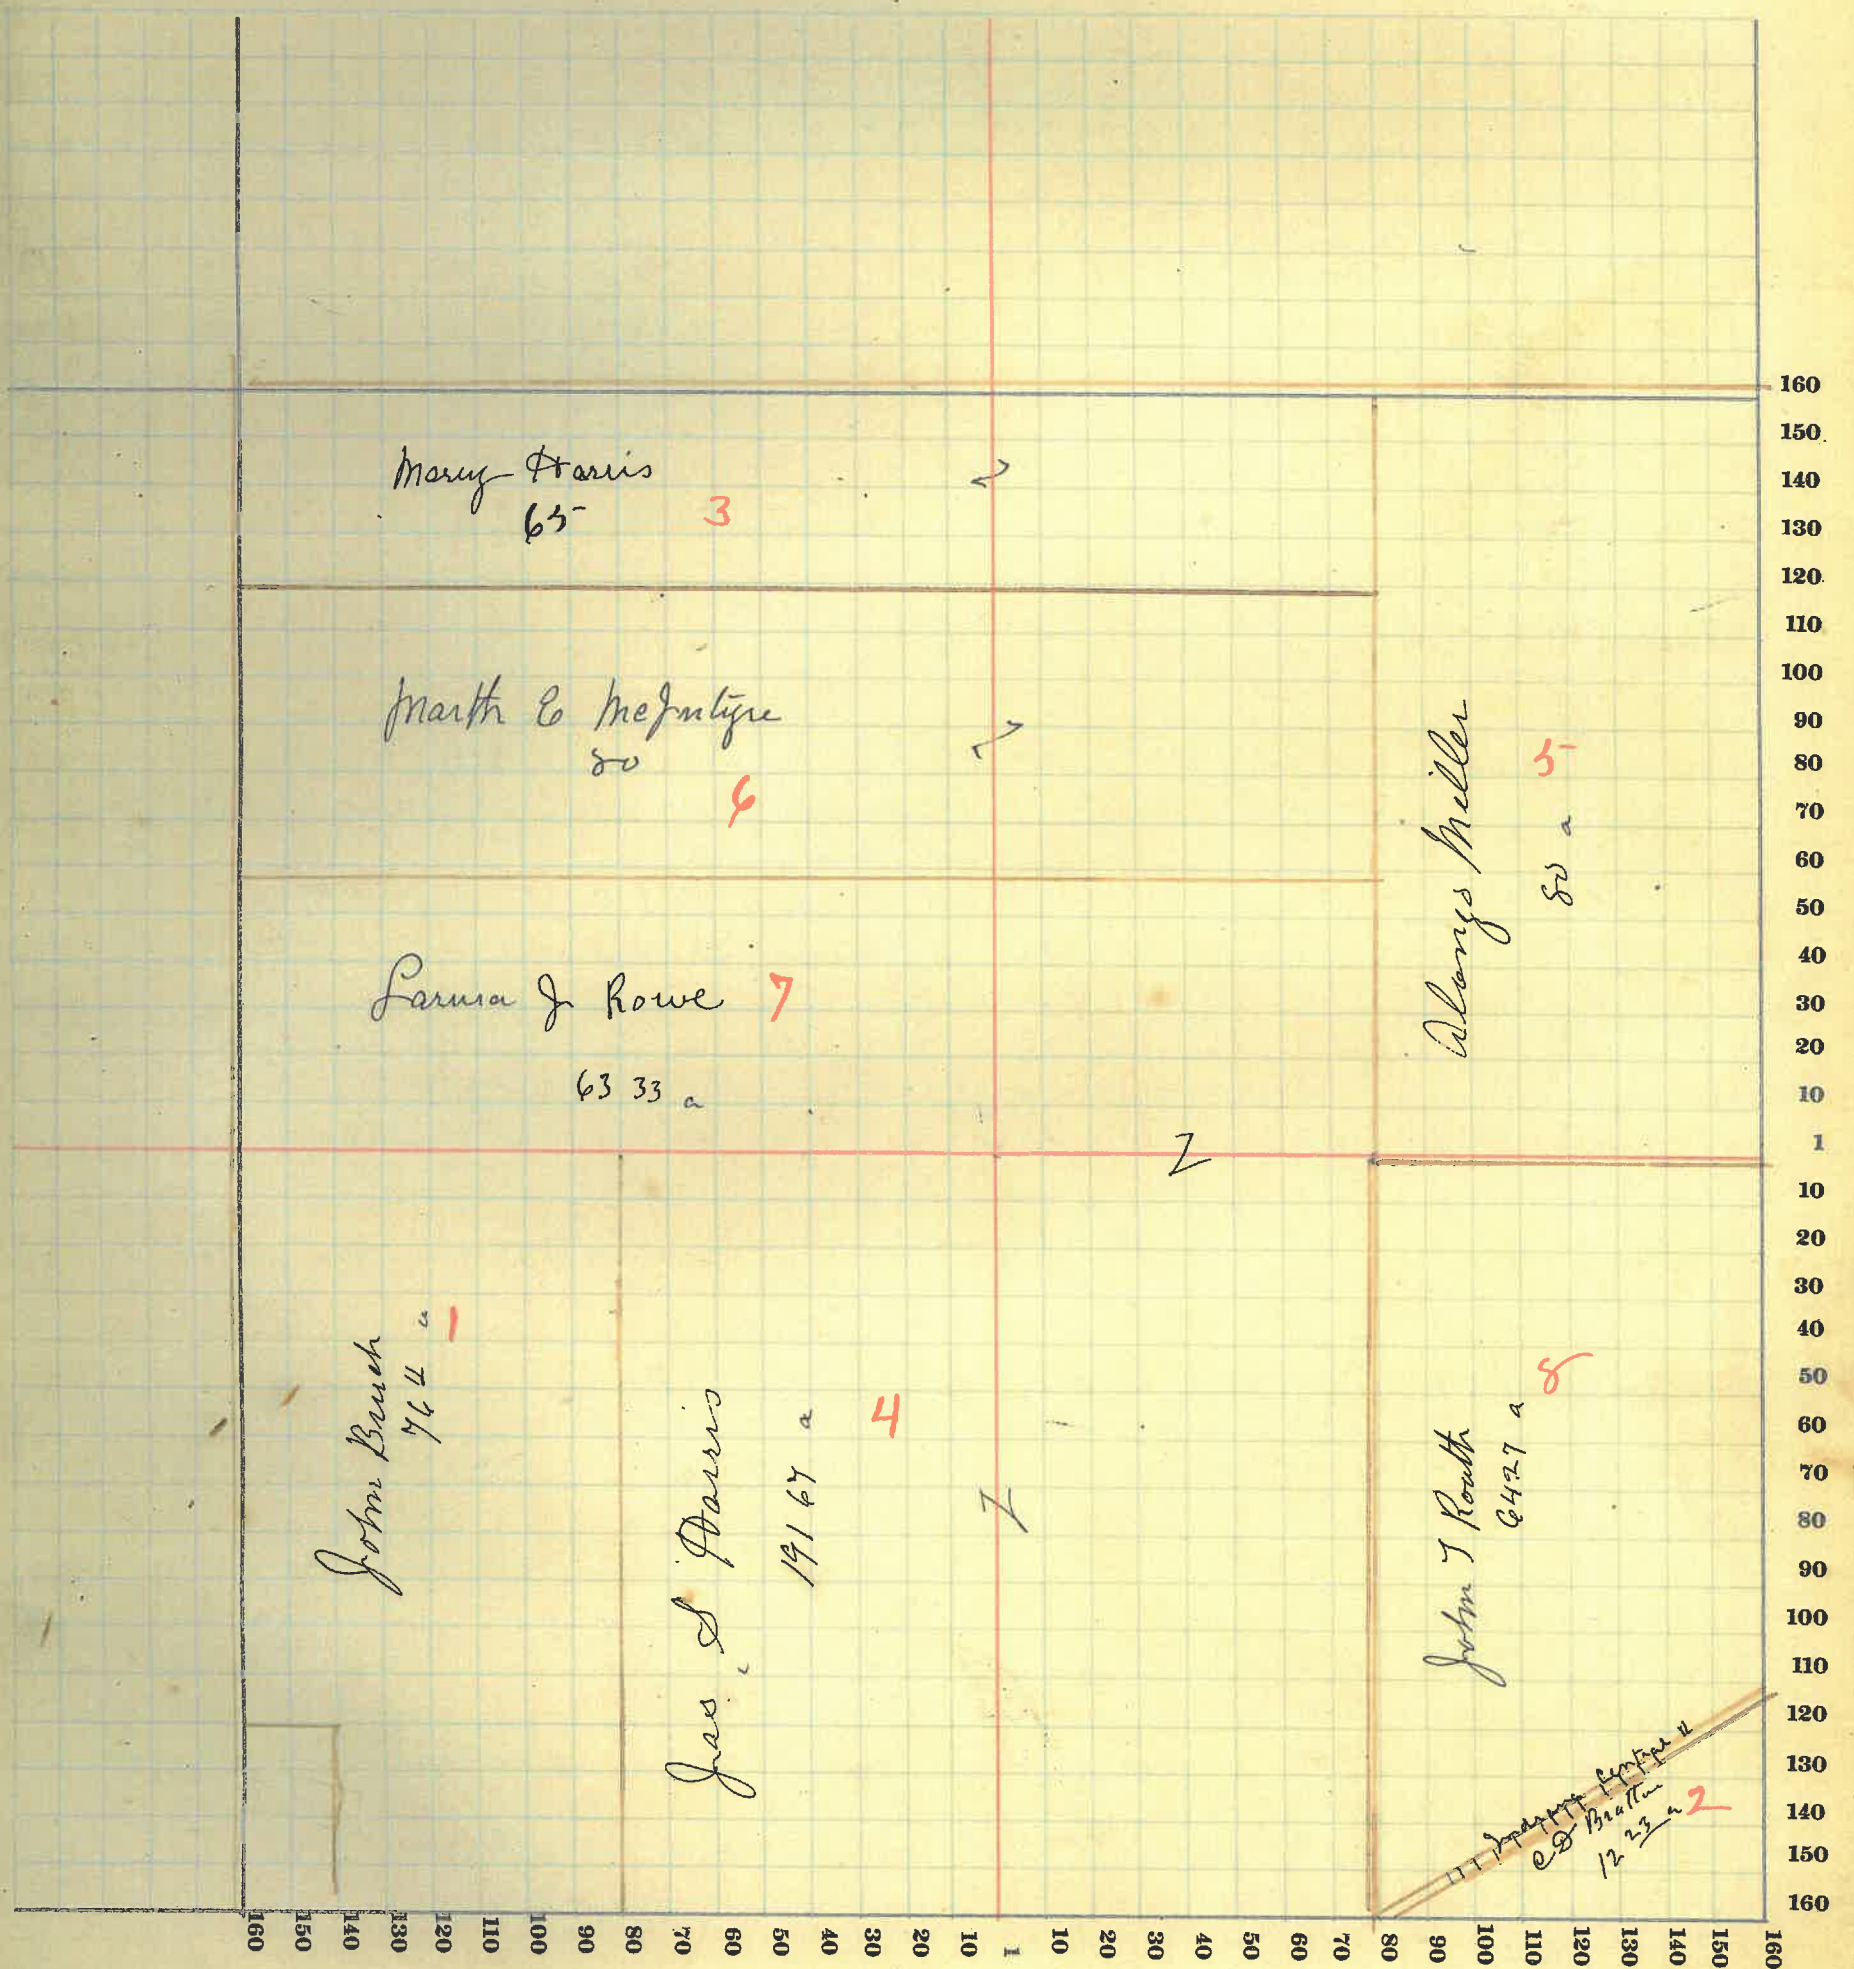 Mary Harris
65 3
Marth E McIntyre
80
6
Larura J Rowe 7
63 33 a
Alonzo Miller 5
80 a
John Bruch
76 4 a 1
Jas. S Harris
191 67 a 4
John T Routh
64 27 a 8
C D Bratton
12 23 a 2
160
150
140
130
120
110
100
90
80
70
60
50
40
30
20
10
1
10
20
30
40
50
60
70
80
90
100
110
120
130
140
150
160
160 150 140 130 120 110 100 90 80 70 60 50 40 30 20 10 1 10 20 30 40 50 60 70 80 90 100 110 120 130 140 150 160